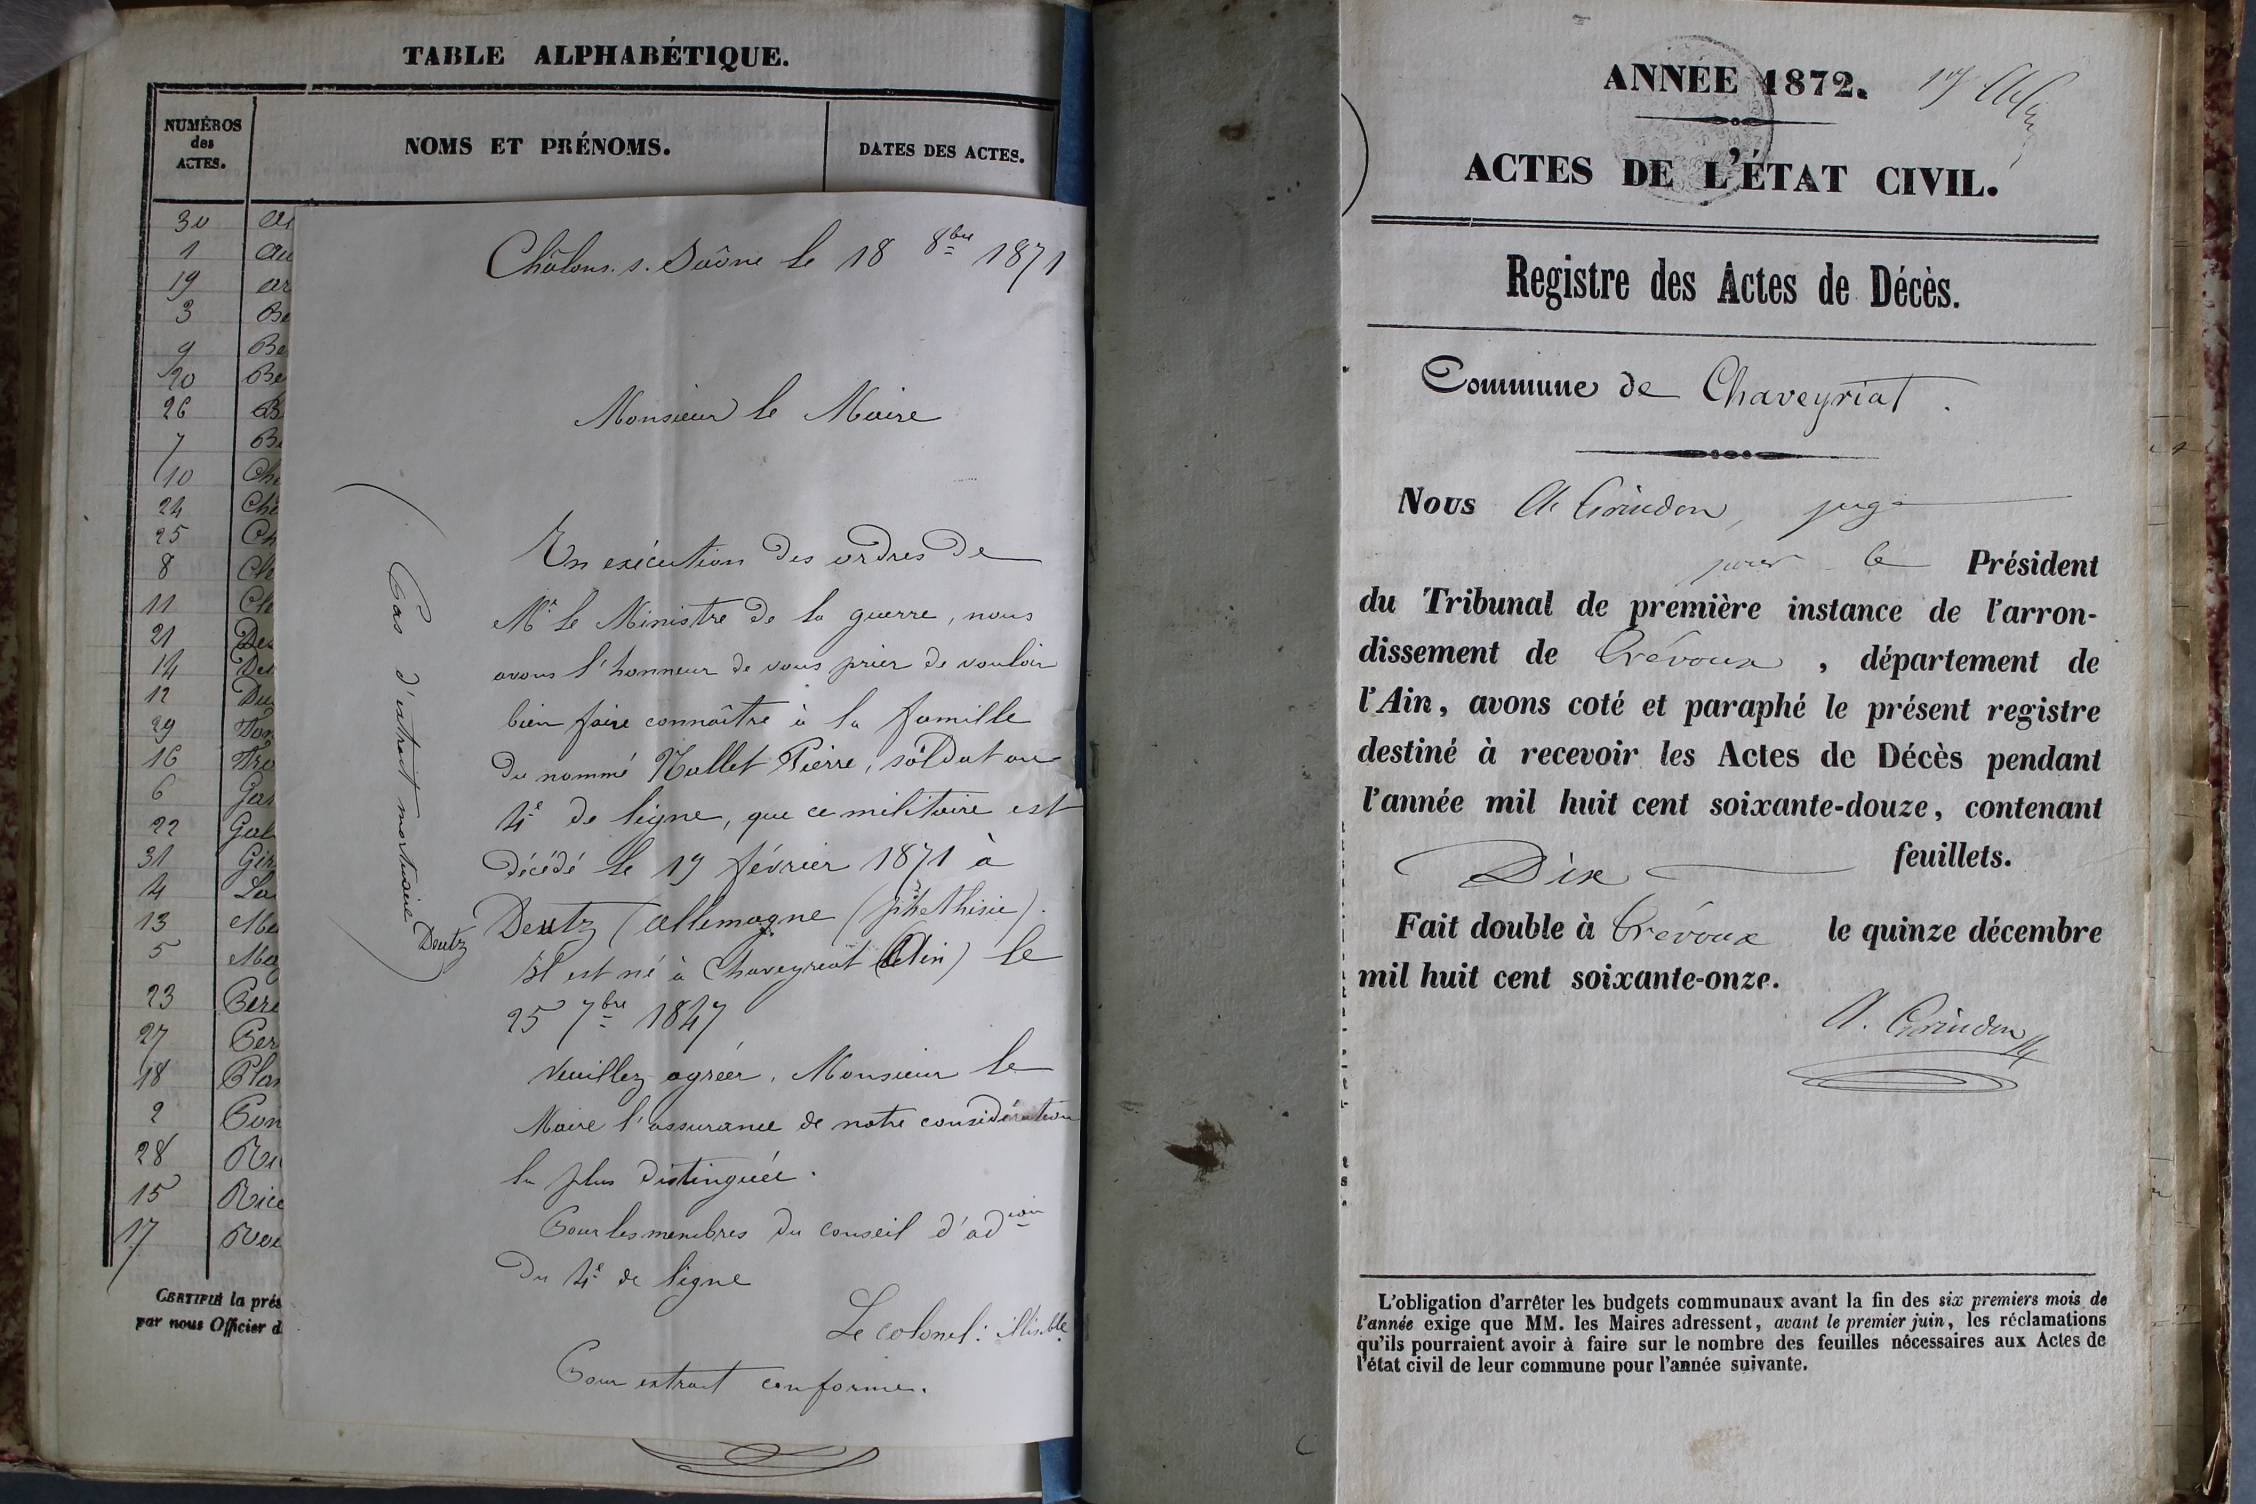 TABLE ALPHABÉTIQUE.
NUMÉROS
des
ACTES.
NOMS ET PRÉNOMS.
DATES DES ACTES.
30
1
19
3
9
20
26
7
10
24
25
8
11
21
14
12
29
16
6
22
31
4
13
5
23
27
18
2
28
15
17
CERTIFIÉ la prés
par nous Officier d
Châlons. s. Saône le 18 8bre 1871
Monsieur le Maire
En exécution des ordres de
Mr le Ministre de la guerre, nous
avons l'honneur de vous prier de vouloir
bien faire connaître à la famille
du nommé Mallet Pierre, soldat au
4e de ligne, que ce militaire est
décédé le 19 février 1871 à
Deutz (allemagne (phethisie).
Il est né à Chaveyriat (Ain) le
25 7bre 1847
Veuillez agréer, Monsieur le
Maire l'assurance de notre considération
la plus distinguée.
Pour les membres du conseil d'adion
du 4e de ligne
Le colonel: illisible.
Pour extrait conforme.
Pas d'extrait mortuaire
Deutz
ANNÉE 1872.
ACTES DE L'ÉTAT CIVIL.
Registre des Actes de Décès.
Commune de Chaveyriat.
Nous A. Grindon, juge
pour le Président
du Tribunal de première instance de l'arron-
dissement de Trévoux, département de
l'Ain, avons coté et paraphé le présent registre
destiné à recevoir les Actes de Décès pendant
l'année mil huit cent soixante-douze, contenant
Dix feuillets.
Fait double à Trévoux le quinze décembre
mil huit cent soixante-onze.
A. Grindon
L'obligation d'arrêter les budgets communaux avant la fin des six premiers mois de
l'année exige que MM. les Maires adressent, avant le premier juin, les réclamations
qu'ils pourraient avoir à faire sur le nombre des feuilles nécessaires aux Actes de
l'état civil de leur commune pour l'année suivante.